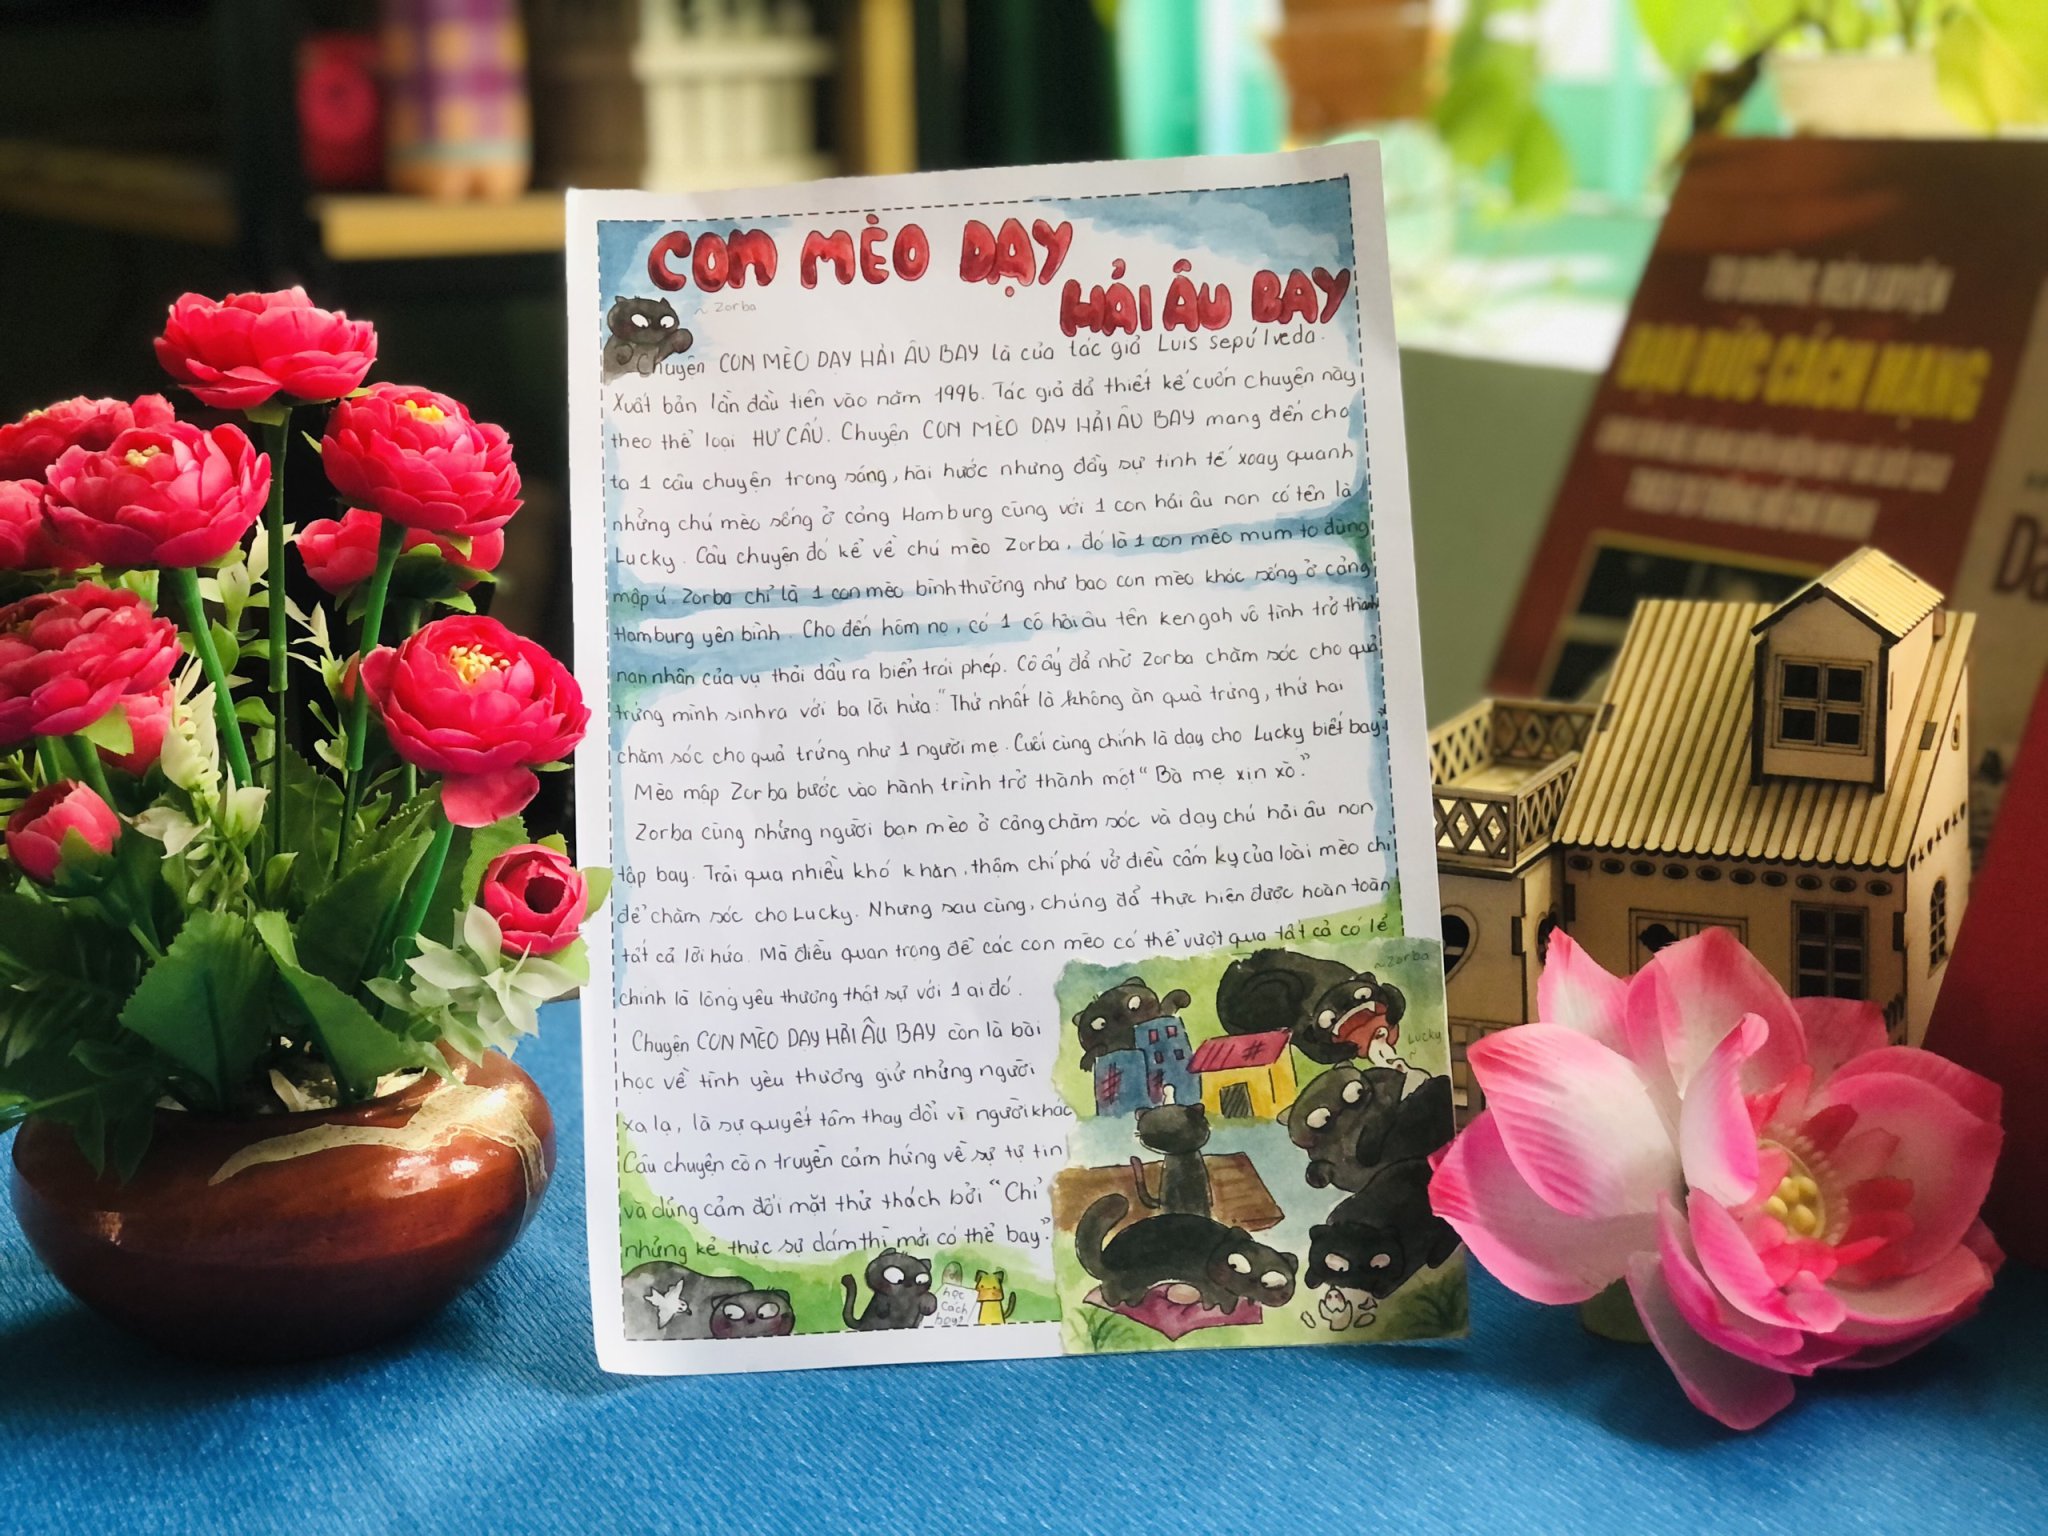 CON MÈO DẠY
HẢI ÂU BAY
~ Zorba
Chuyện CON MÈO DẠY HẢI ÂU BAY là của tác giả Luis sepúlveda.
Xuất bản lần đầu tiên vào năm 1996. Tác giả đã thiết kế cuốn chuyện này
theo thể loại HƯ CẤU. Chuyện CON MÈO DẠY HẢI ÂU BAY mang đến cho
ta 1 câu chuyện trong sáng, hài hước nhưng đầy sự tinh tế xoay quanh
những chú mèo sống ở cảng Hamburg cùng với 1 con hải âu non có tên là
Lucky. Câu chuyện đó kể về chú mèo Zorba, đó là 1 con mèo mum to đùng
mập ú. Zorba chỉ là 1 con mèo bình thường như bao con mèo khác sống ở cảng
Hamburg yên bình. Cho đến hôm nọ, có 1 cô hải âu tên kengah vô tình trở thành
nạn nhân của vụ thải dầu ra biển trái phép. Cô ấy đã nhờ Zorba chăm sóc cho quả
trứng mình sinh ra với ba lời hứa: "Thứ nhất là không ăn quả trứng, thứ hai
chăm sóc cho quả trứng như 1 người mẹ. Cuối cùng chính là dạy cho Lucky biết bay."
Mèo mập Zorba bước vào hành trình trở thành một "Bà mẹ xin xò."
Zorba cùng những người bạn mèo ở cảng chăm sóc và dạy chú hải âu non
tập bay. Trải qua nhiều khó khăn, thậm chí phá vỡ điều cấm kỵ của loài mèo chỉ
để chăm sóc cho Lucky. Nhưng sau cùng, chúng đã thực hiện được hoàn toàn
tất cả lời hứa. Mà điều quan trọng để các con mèo có thể vượt qua tất cả có lẽ
chính là lòng yêu thương thật sự với 1 ai đó.
Chuyện CON MÈO DẠY HẢI ÂU BAY còn là bài
học về tình yêu thương giữ những người
xa lạ, là sự quyết tâm thay đổi vì người khác
Câu chuyện còn truyền cảm hứng về sự tự tin
và dũng cảm đối mặt thử thách bởi "Chỉ
những kẻ thực sự dám thì mới có thể bay."
~Zorba
Lucky
~
học
cách
bay?
TU DƯỠNG, RÈN LUYỆN
ĐẠO ĐỨC CÁCH MẠNG